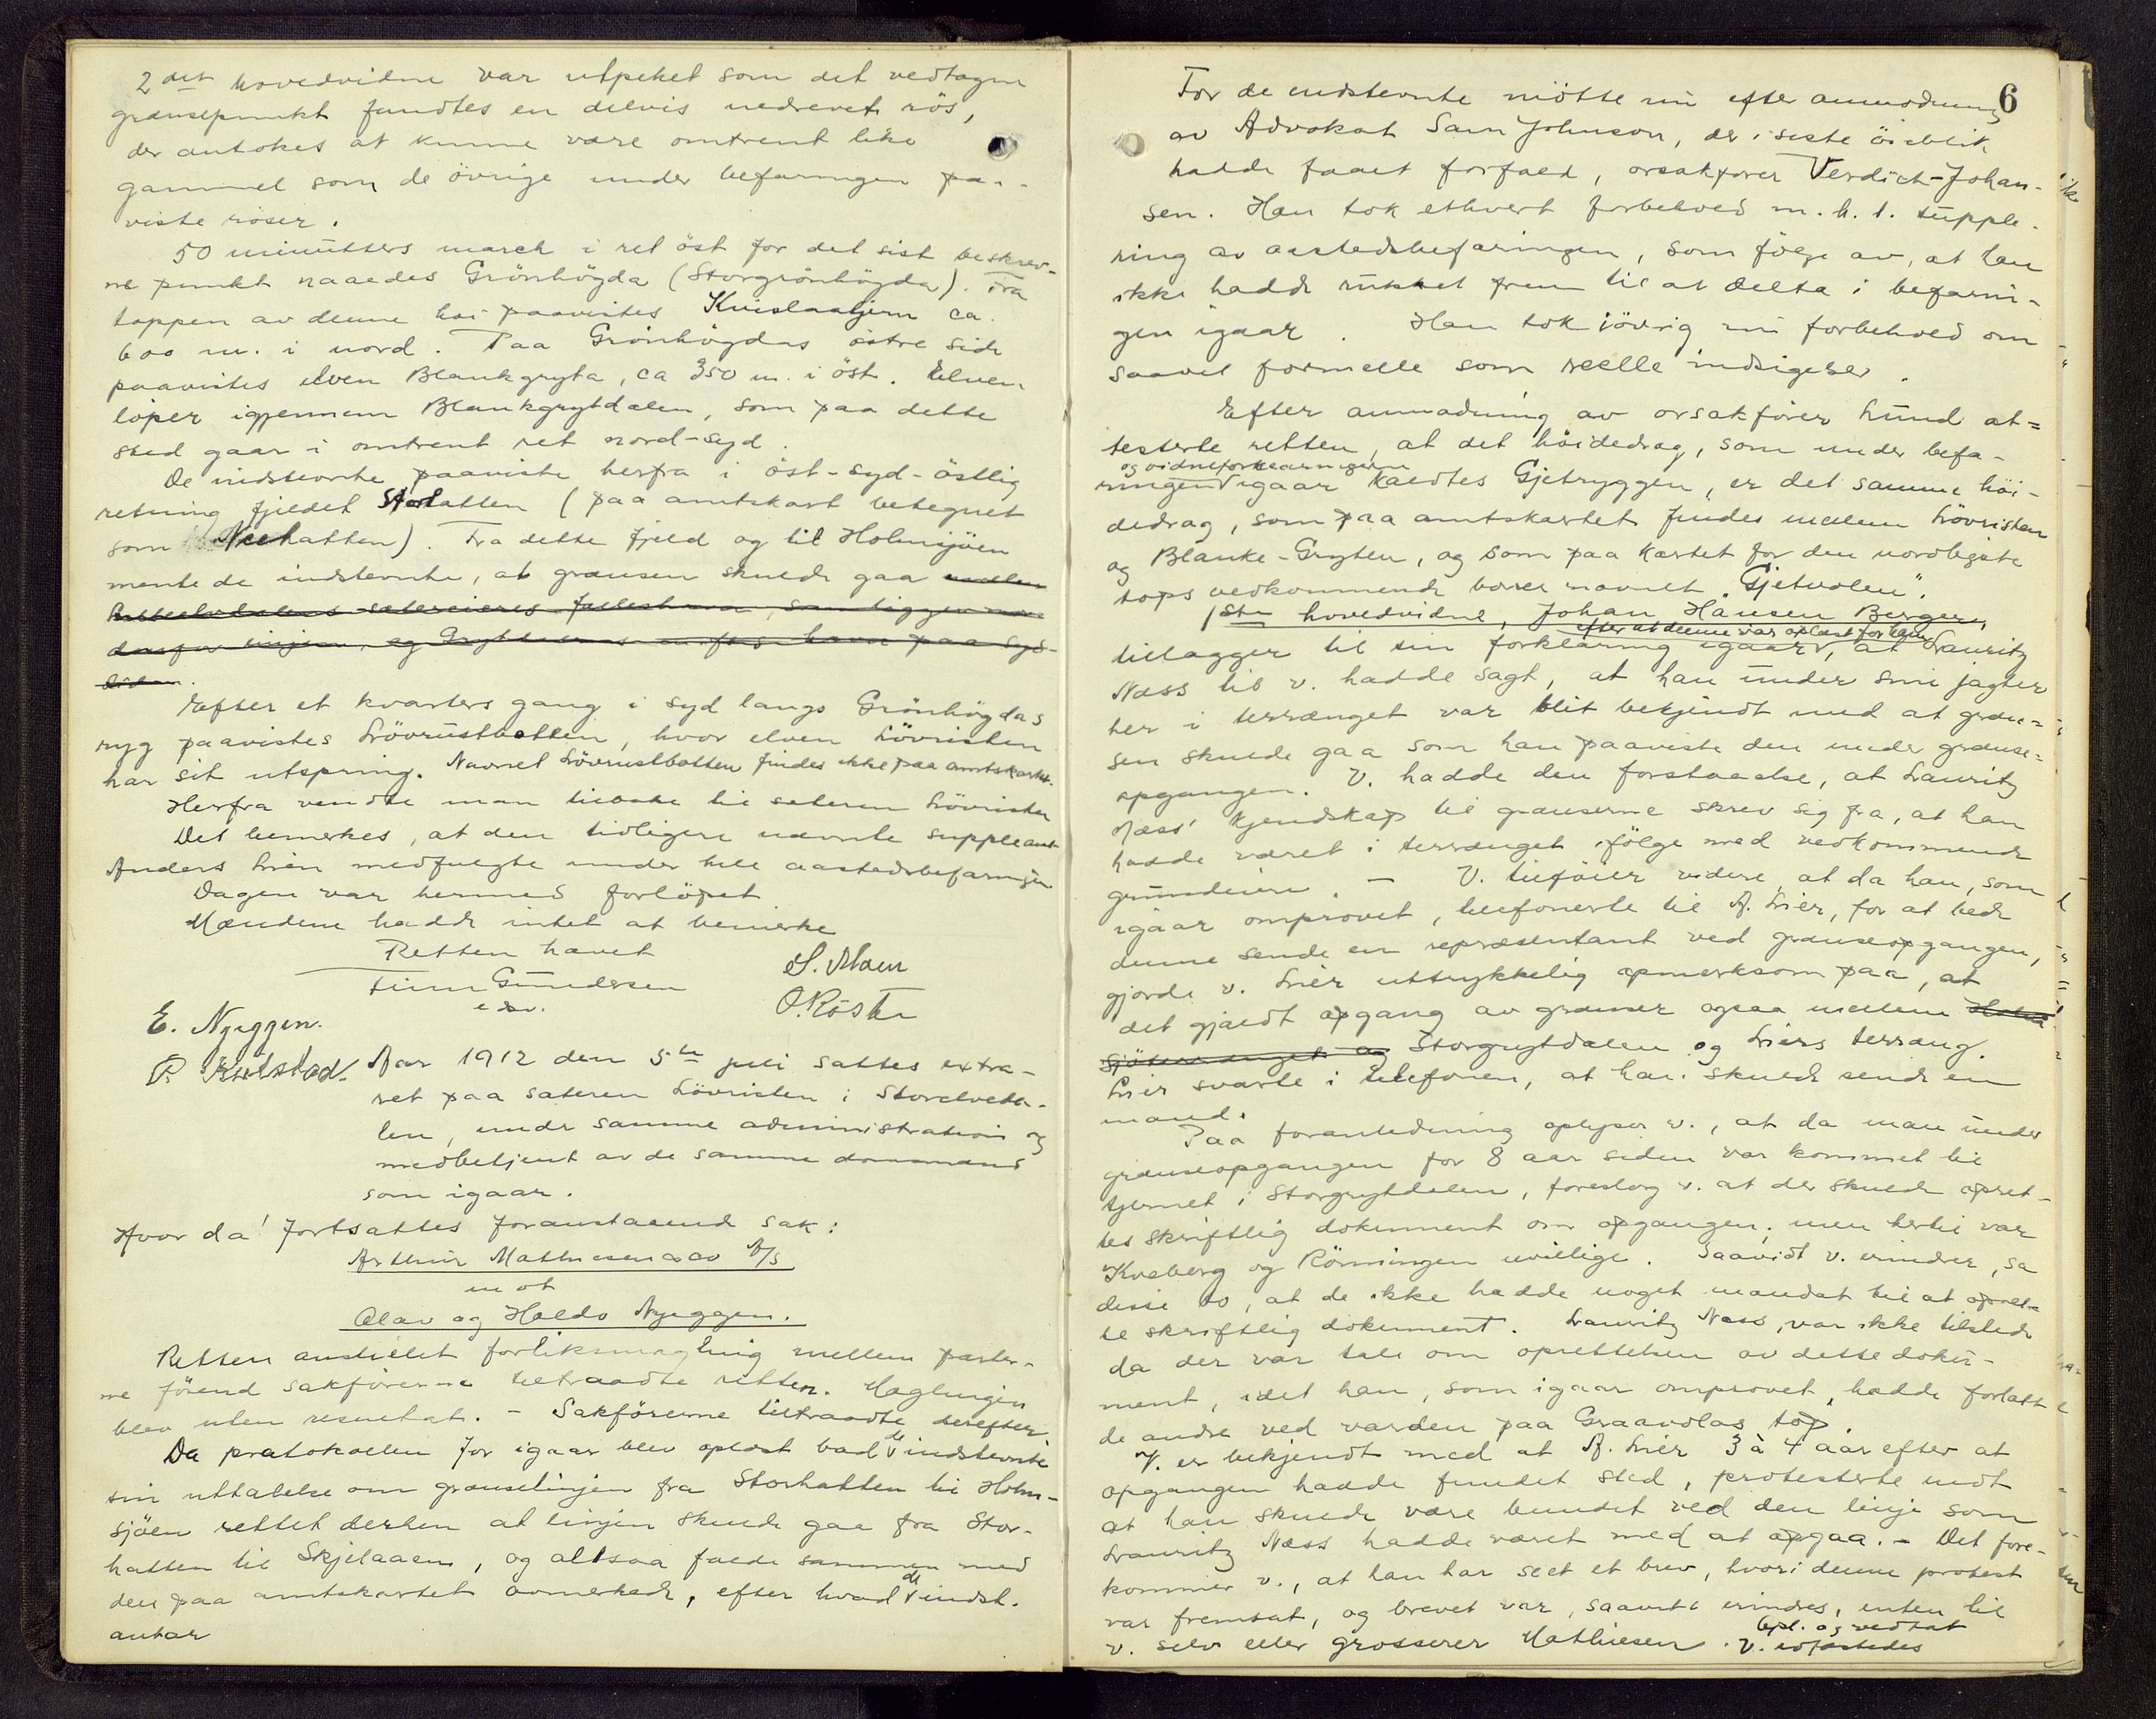 2det hovedvidne var utpeket som det vedtagne
grænsepunkt fandtes en delvis nedrevet rös,
der antokes at kunne være omtrent like
gammel som de övrige under befaringen paa-
viste röser.
50 minutters march i ret öst for det sist beskrev-
ne punkt naaedes Grönhögda (Storgrönhögda). Fra
toppen av denne höi paavistes Kvislaatjern ca.
600 m. i nord. Paa Grönhögdas östre side
paavistes elven Blankgryta, ca 350 m. i öst. Elven
löper igjennem Blankgrytdalen, som paa dette
sted gaar i omtrent ret nord-syd.
De indstevnte paaviste herfra i öst-syd-östlig
retning fjeldet Storhatten (paa amtskart betegnet
som Neehatten). Fra dette fjeld og til Holmsjöen
mente de indstevnte, at grænsen skulde gaa mellem
sætereieres fælleshavn, som ligger nor-
denfor linjen, og havn paa syd-
siden.
Efter et kvarters gang i syd langs Grönhögdas
ryg paavistes Lövrustbotten, hvor elven Lövristen
har sit utspring. Navnet Lövrustbotten findes ikke paa amtskartet.
Herfra vendte man tilbake til sæteren Lövristen
Det bemerkes, at den tidligere nævnte suppleant
Anders Lien medfulgte under hele aastedsbefaringen
Dagen var hermed forlöpet
Mændene hadde intet at bemerke
Retten hævet
Finn Gundersen
e.s.v.
S. Moen
O. Röste
E. Nyeggen.
P. Kulstad.
Aar 1912 den 5te juli sattes extra-
ret paa sæteren Lövristen i Storelveda-
len, under samme administration og
medbetjent av de samme domsmænd
som igaar.
Hvor da! fortsattes foranstaaende sak:
Arthur Mathiesen & co A/S
mot
Olav og Haldo Nyeggen.
Retten anstillet forliksmægling mellem parter-
ne förend sakförerne tiltraadte retten. Mæglingen
blev uten resultat. - Sakförerne tiltraadte derefter
Da protokollen for igaar blev oplæst bad de indstevnte
sin uttalelse om grænselinjen fra Storhatten til Holm-
sjöen rettet derhen at linjen skulde gaa fra Stor-
hatten til Skjelaaen, og altsaa falde sammen med
den paa amtskartet avmerkede, efter hvad de indst.
antar
6
For de indstevnte mötte nu efter anmodning
av Advokat Sam Johnson, der i siste öieblik
hadde faaet forfald, orsakförer Verdich-Johan-
sen. Han tok ethvert forbehold m. h. t. supple-
ring av aastedsbefaringen, som fölge av, at han
ikke hadde rukket frem til at delta i befarin-
gen igaar. Han tok iövrig nu forbehold om
saavel formelle som reelle indsigelser.
Efter anmodning av orsakförer Lund at-
testerte retten, at det höidedrag, som under befa-
og vidneforklaringerne
ringen igaar kaldtes Gjetryggen, er det samme höi-
dedrag, som paa amtskartet findes mellem Lövristen
og Blanke-Gryten, og som paa kartet for den nordligste
tops vedkommende bærer navnet "Gjetvolen".
1ste hovedvidne, Johan Hansen Berger,
efter at denne var oplæst for ham
tillægger til sin forklaring igaar, at Lauritz
Næss til v. hadde sagt, at han under sine jagter
her i terrænget var blit bekjendt med at græn-
sen skulde gaa som han paaviste den under grænse-
opgangen. V. hadde den forstaaelse, at Lauritz
Næss' kjendskap til grænserne skrev sig fra, at han
hadde været i terrænget ifölge med vedkommende
grundeiere. - V. tilföier videre, at da han, som
igaar omprovet, telefonerte til A. Lier, for at bede
denne sende en repræsentant ved grænseopgangen,
gjorde v. Lier uttrykkelig opmerksom paa, at
det gjaldt opgang av grænser ogsaa mellem Holm-
sjöterrænget og Storgrytdalen og Liers terræng.
Lier svarte i telefonen, at han skulde sende en
mand.
Paa foranledning oplyser v., at da man under
grænseopgangen for 8 aar siden var kommet til
tjernet i Storgrytdalen, foreslog v. at der skulde opret-
tes skriftlig dokument om opgangen; men hertil var
Kvæberg og Rönningen uvillige. Saavidt v. erindrer, sa
disse to, at de ikke hadde noget mandat til at opret-
te skriftlig dokument. Lauritz Næss, var ikke tilstede
da der var tale om oprettelsen av dette doku-
ment, idet han, som igaar omprovet, hadde forlatt
de andre ved varden paa Graavolas top.
V. er bekjendt med at A. Lier 3 à 4 aar efter at
opgangen hadde fundet sted, protesterte mot
at han skulde være bundet ved den linje som
Lauritz Næss hadde været med at opgaa. - Det fore-
kommer v., at han har seet et brev, hvori denne protest
var fremsat, og brevet var, saavidt erindres, enten til
v. selv eller grosserer Mathiesen. Opl. og vedtat
V.